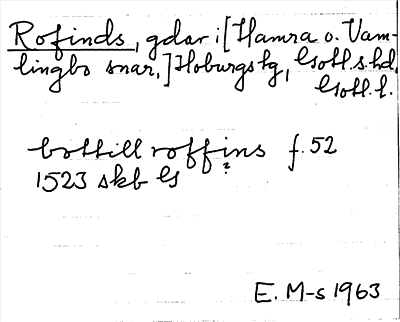 Rofinds, gdar i [Hamra o. Vam-
lingbo snar,] Hoburgs tg, Gotl. s. hd,
Gotl. l.
bottill roffins f. 52
?
1523 skb G
E. M-s 1963